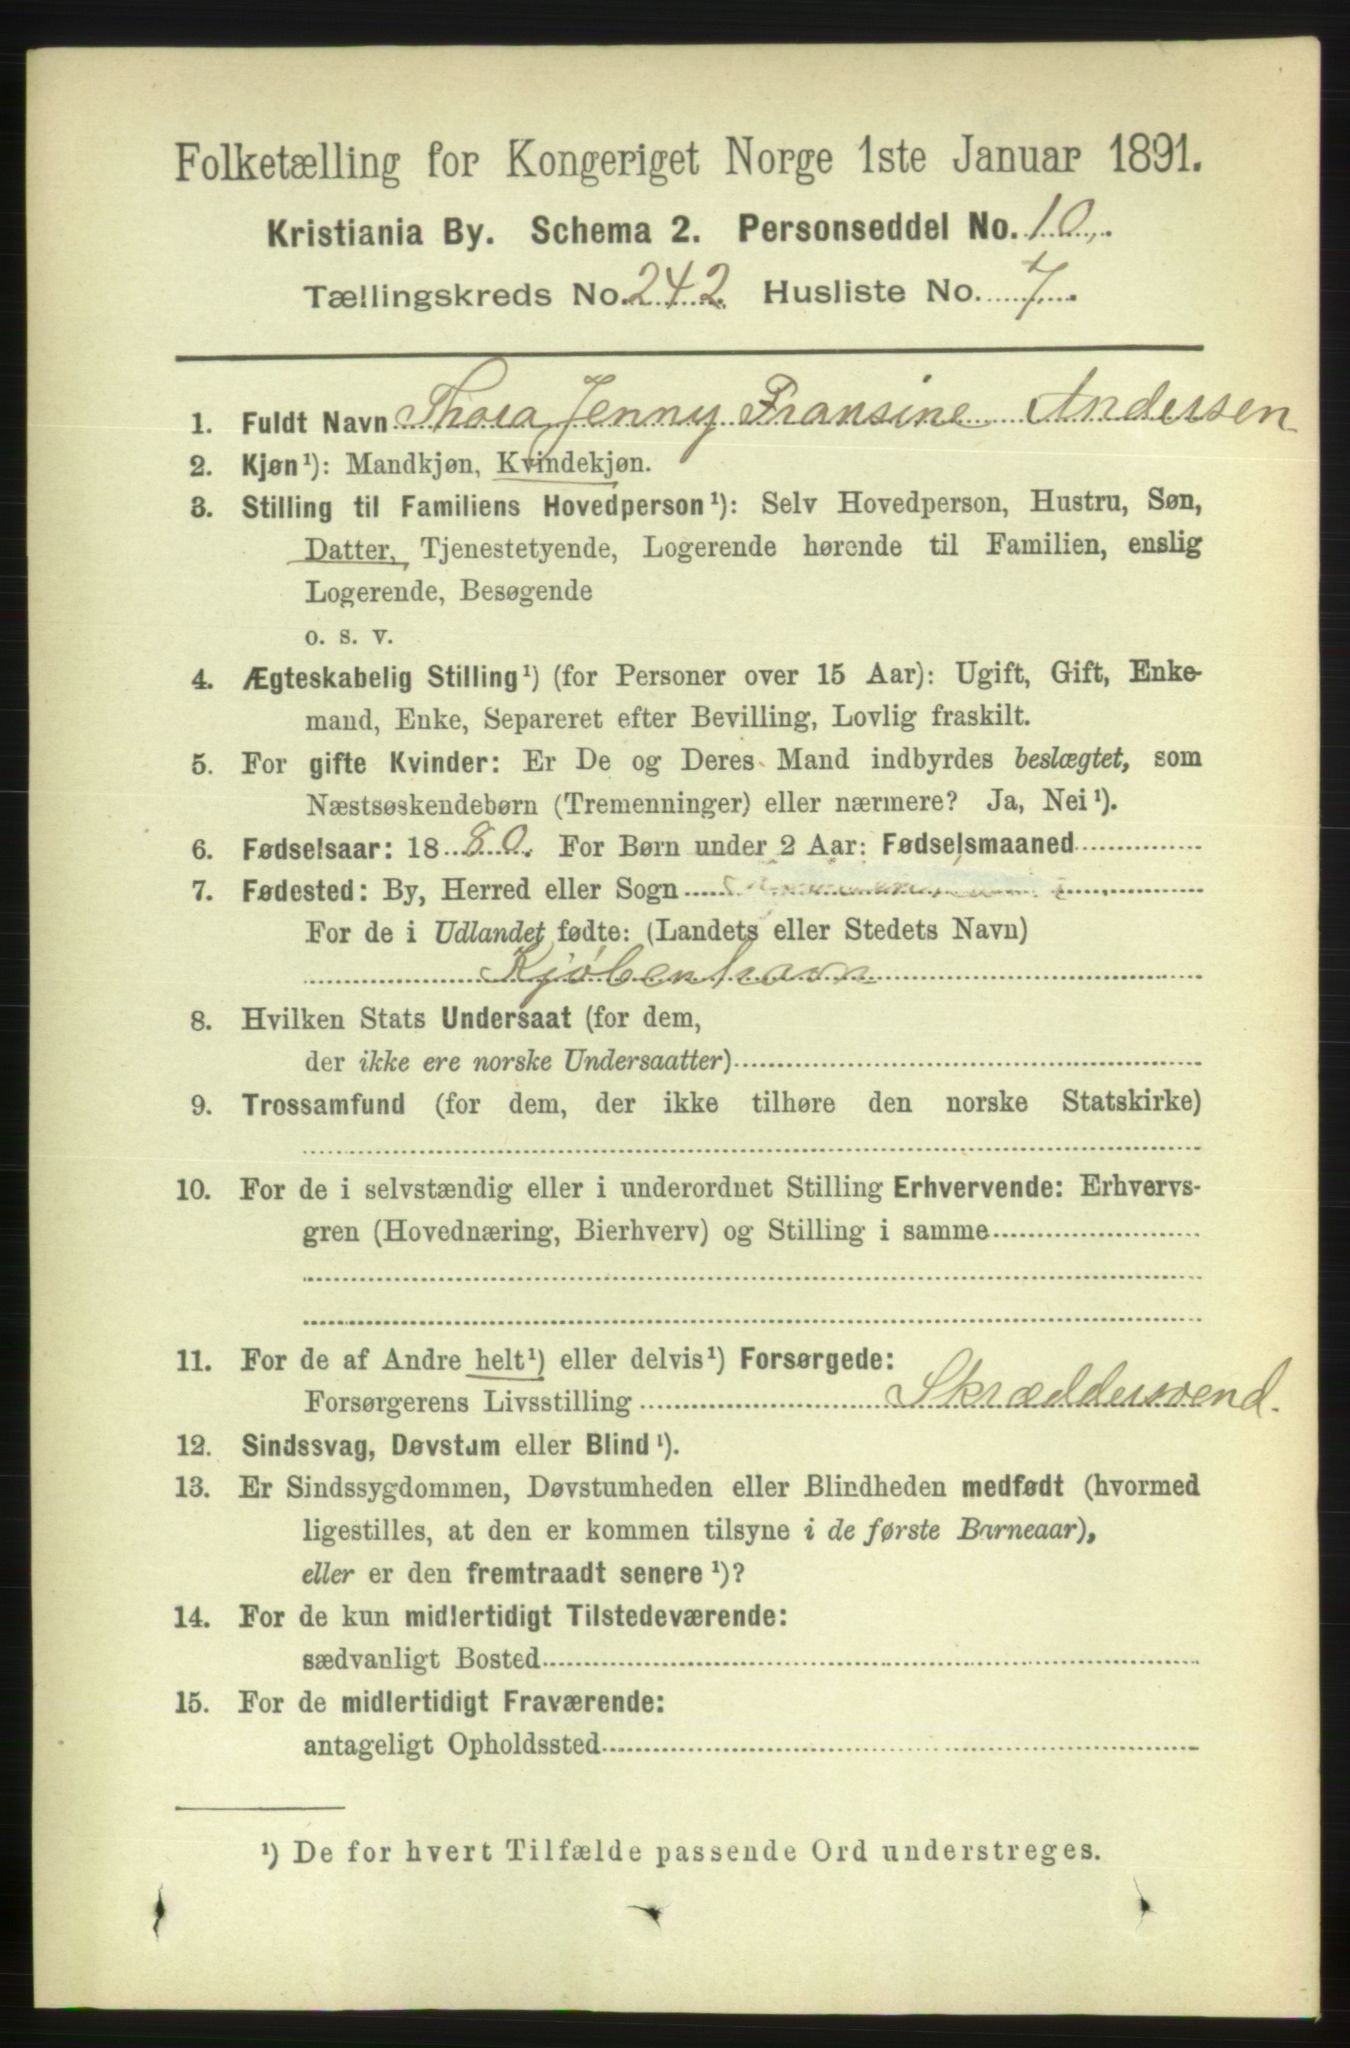 Folketælling for Kongeriget Norge 1ste Januar 1891.
Kristiania By. Schema 2. Personseddel No. 10.
Tællingskreds No. 242 Husliste No. 7.
1. Fuldt Navn Thora Jenny Fransine Andersen
2. Kjøn¹): Mandkjøn, Kvindekjøn.
3. Stilling til Familiens Hovedperson¹): Selv Hovedperson, Hustru, Søn,
Datter, Tjenestetyende, Logerende hørende til Familien, enslig
Logerende, Besøgende
o. s. v.
4. Ægteskabelig Stilling¹) (for Personer over 15 Aar): Ugift, Gift, Enke-
mand, Enke, Separeret efter Bevilling, Lovlig fraskilt.
5. For gifte Kvinder: Er De og Deres Mand indbyrdes beslægtet, som
Næstsøskendebørn (Tremenninger) eller nærmere? Ja, Nei¹).
6. Fødselsaar: 1880. For Børn under 2 Aar: Fødselsmaaned
7. Fødested: By, Herred eller Sogn
For de i Udlandet fødte: (Landets eller Stedets Navn)
Kjøbenhavn
8. Hvilken Stats Undersaat (for dem,
der ikke ere norske Undersaatter)
9. Trossamfund (for dem, der ikke tilhøre den norske Statskirke)
10. For de i selvstændig eller i underordnet Stilling Erhvervende: Erhvervs-
gren (Hovednæring, Bierhverv) og Stilling i samme
11. For de af Andre helt¹) eller delvis¹) Forsørgede:
Forsørgerens Livsstilling Skræddersvend.
12. Sindssvag, Døvstum eller Blind¹).
13. Er Sindssygdommen, Døvstumheden eller Blindheden medfødt (hvormed
ligestilles, at den er kommen tilsyne i de første Barneaar),
eller er den fremtraadt senere¹)?
14. For de kun midlertidigt Tilstedeværende:
sædvanligt Bosted
15. For de midlertidigt Fraværende:
antageligt Opholdssted
¹) De for hvert Tilfælde passende Ord understreges.